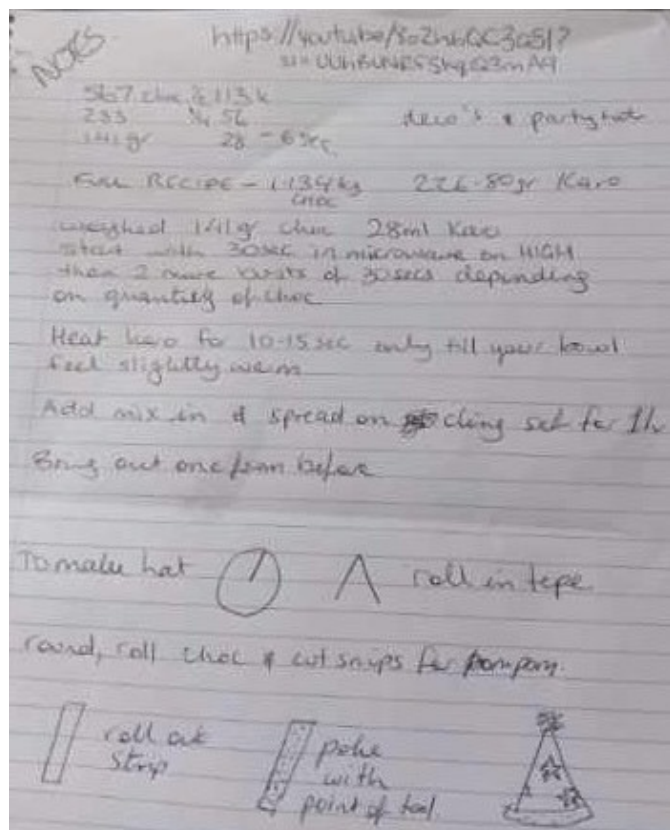 NOTES
https://youtube/
567 choc ½ 113 k
283 ¼ 56
141 gr 28 - 6 sec
deco's & party hat
FULL RECIPE - 1.134kg choc 226.80gr Karo
weighed 141g choc 28ml Karo
start with 30sec in microwave on HIGH
then 2 more bursts of 30secs depending
on quantity of choc
Heat karo for 10-15 sec only till your bowl
feel slightly warm
Add mix in & spread on cling set for 1hr
Bring out one from before
To make hat roll in tape
round, roll choc & cut snips for pompom.
roll out
strip
poke
with
point of tool